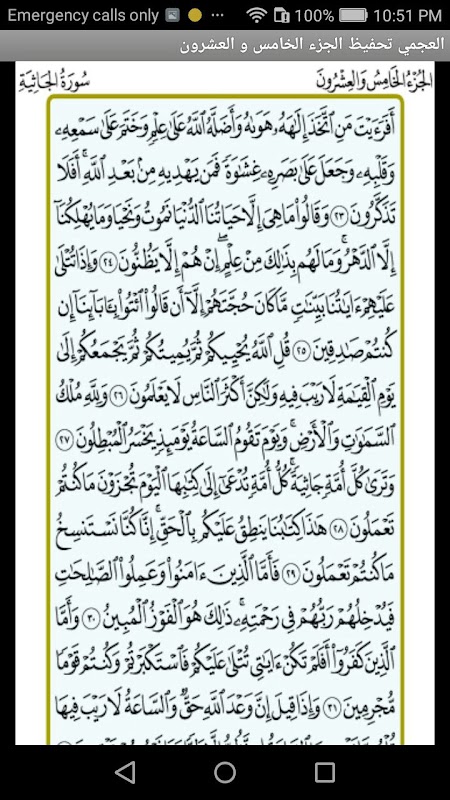 Emergency calls only ... 100% 10:51 PM
العجمي تحفيظ الجزء الخامس و العشرون
الجُزْءُ الخَامِسُ وَالعِشْرُونَ سُورَةُ الجَاثِيَةِ
أَفَرَءَيْتَ مَنِ ٱتَّخَذَ إِلَٰهَهُۥ هَوَىٰهُ وَأَضَلَّهُ ٱللَّهُ عَلَىٰ عِلْمٍ وَخَتَمَ عَلَىٰ سَمْعِهِۦ
وَقَلْبِهِۦ وَجَعَلَ عَلَىٰ بَصَرِهِۦ غِشَٰوَةً فَمَن يَهْدِيهِ مِنۢ بَعْدِ ٱللَّهِ ۚ أَفَلَا
تَذَكَّرُونَ ٢٣ وَقَالُوا۟ مَا هِىَ إِلَّا حَيَاتُنَا ٱلدُّنْيَا نَمُوتُ وَنَحْيَا وَمَا يُهْلِكُنَآ
إِلَّا ٱلدَّهْرُ ۚ وَمَا لَهُم بِذَٰلِكَ مِنْ عِلْمٍ ۖ إِنْ هُمْ إِلَّا يَظُنُّونَ ٢٤ وَإِذَا تُتْلَىٰ
عَلَيْهِمْ ءَايَٰتُنَا بَيِّنَٰتٍ مَّا كَانَ حُجَّتَهُمْ إِلَّآ أَن قَالُوا۟ ٱئْتُوا۟ بِـَٔابَآئِنَآ إِن
كُنتُمْ صَٰدِقِينَ ٢٥ قُلِ ٱللَّهُ يُحْيِيكُمْ ثُمَّ يُمِيتُكُمْ ثُمَّ يَجْمَعُكُمْ إِلَىٰ
يَوْمِ ٱلْقِيَٰمَةِ لَا رَيْبَ فِيهِ وَلَٰكِنَّ أَكْثَرَ ٱلنَّاسِ لَا يَعْلَمُونَ ٢٦ وَلِلَّهِ مُلْكُ
ٱلسَّمَٰوَٰتِ وَٱلْأَرْضِ ۚ وَيَوْمَ تَقُومُ ٱلسَّاعَةُ يَوْمَئِذٍ يَخْسَرُ ٱلْمُبْطِلُونَ ٢٧
وَتَرَىٰ كُلَّ أُمَّةٍ جَاثِيَةً ۚ كُلُّ أُمَّةٍ تُدْعَىٰٓ إِلَىٰ كِتَٰبِهَا ٱلْيَوْمَ تُجْزَوْنَ مَا كُنتُمْ
تَعْمَلُونَ ٢٨ هَٰذَا كِتَٰبُنَا يَنطِقُ عَلَيْكُم بِٱلْحَقِّ ۚ إِنَّا كُنَّا نَسْتَنسِخُ
مَا كُنتُمْ تَعْمَلُونَ ٢٩ فَأَمَّا ٱلَّذِينَ ءَامَنُوا۟ وَعَمِلُوا۟ ٱلصَّٰلِحَٰتِ
فَيُدْخِلُهُمْ رَبُّهُمْ فِى رَحْمَتِهِۦ ۚ ذَٰلِكَ هُوَ ٱلْفَوْزُ ٱلْمُبِينُ ٣٠ وَأَمَّا
ٱلَّذِينَ كَفَرُوٓا۟ أَفَلَمْ تَكُنْ ءَايَٰتِى تُتْلَىٰ عَلَيْكُمْ فَٱسْتَكْبَرْتُمْ وَكُنتُمْ قَوْمًا
مُّجْرِمِينَ ٣١ وَإِذَا قِيلَ إِنَّ وَعْدَ ٱللَّهِ حَقٌّ وَٱلسَّاعَةُ لَا رَيْبَ فِيهَا